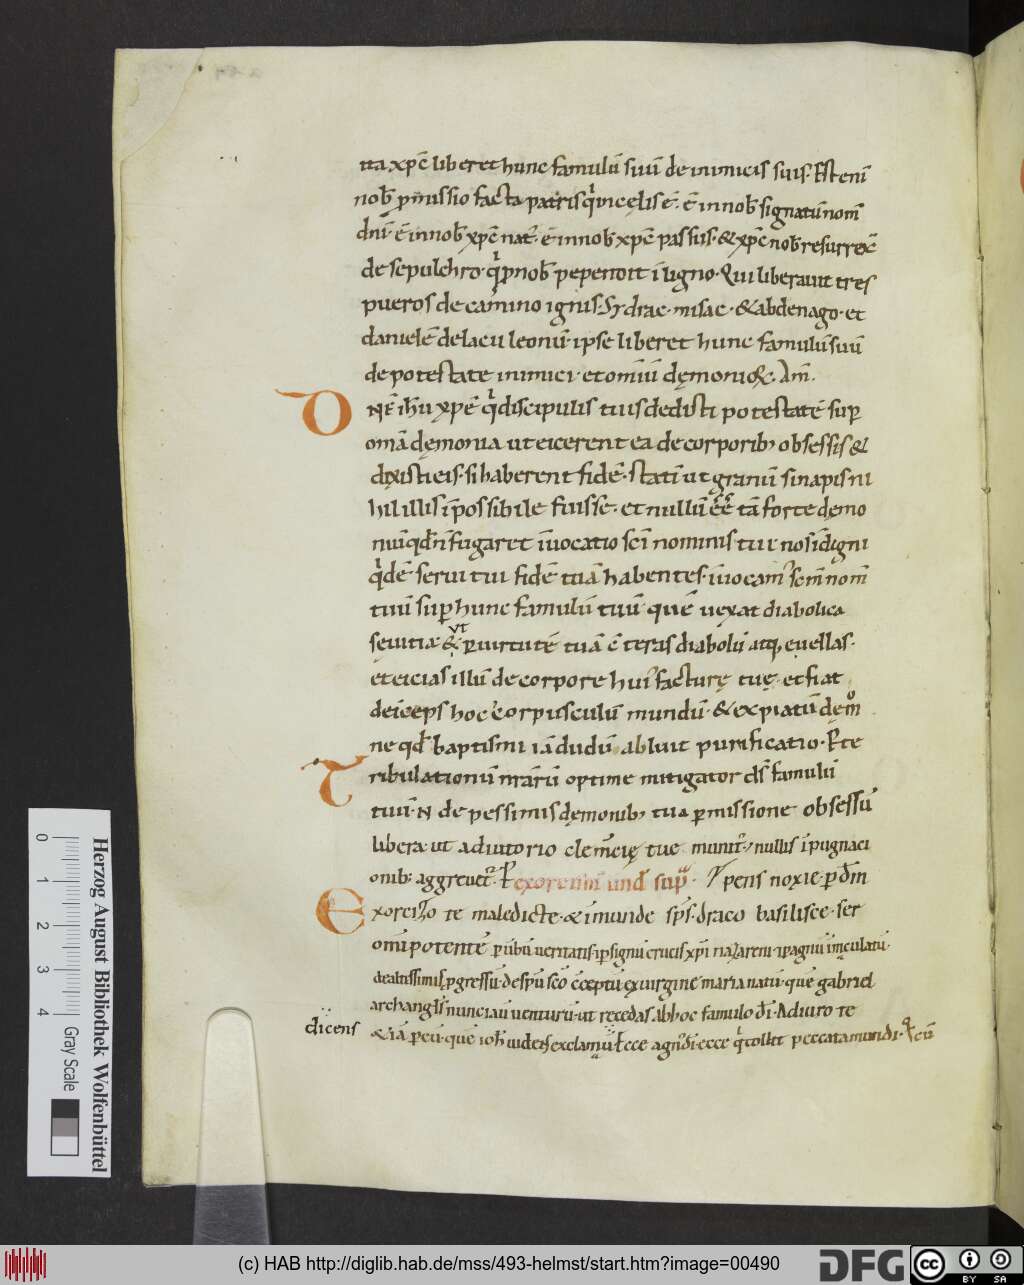 ita xpc̄ liberet hunc famulū suū de inimicis suis. Est enī
nob̄ p̄missio facta patris qͥ in cęlis ē. ē in nob̄ signatū nom̄
dn̄i. ē in nob̄ xpc̄ nat᷒. ē in nob̄ xpc̄ passus. & xpc̄ nob̄ resurrex̄
de sepulchro. qͥ p nob̄ pependit ī ligno. Qui liberauit tres
pueros de camino ignis. Sydrac. misac. & abdenago. et
danielē de lacu leonū. ipse liberet hunc famulū suū
de potestate inimici. et omiū demonioꝝ. Am̄.
DNĒ ih̄u xpē qͥ discipulis tuis dedisti potestatē sup
omā dęmonia ut eicerent ea de corporibꝫ obsessis &
dixisti eis. si haberent fidē. statī ut granū sinapis ni
hil illis īpossibile fuisse. et nullū eē tā forte demo
niū qd̄ n̄ fugaret īuocatio sc̄i nominis tui. nos īdigni
qͥdē serui tui fidē tuā habentes. īuocam᷒ sc̄m nom̄
tuū sup hunc famulū tuū quē uexat diabolica
sęuitia. & ut ꝑ uirtutē tuā cōteras diabolū atqꝫ euellas.
et eicias illū de corpore hui᷒ facturę tuę. et fiat
deīceps hoc corpusculū mundū. & expiatū dęmͦ
ne qd̄ baptismi iā dudū abluit purificatio. P te
Tribulationū nr̄arū optime mitigator ds̄ famulū
tuū. N de pessimis dęmonibꝫ tua ꝑmissione obsessū
libera. ut adiutorio clem̄cię tue munit᷒. nullis īpugnaci
onibꝫ aggreuet᷒. P exorcism̄ und̄ sup̄. Ppens noxie. ꝑ dm̄
Exorcizo te maledicte. & īmunde sps̄. draco basilisce. ser
omīpotentē ꝑ uerbū ueritatis. ꝑ signū crucis xpī nazareni. ꝑ agnū īmaculatū.
de altissimis ꝓgressū. de spū sc̄o cōceptū. ex uirgine maria natū. quē gabriel
archangls̄ nunciauit uenturū. ut recedas ab hoc famulo dī. Adiuro te
dicens
& iā ꝑ eū. quē ioh̄ uidens exclamauit. Ecce agn᷒ dī. ecce qͥ tollit peccata mundi. P eū
Herzog August Bibliothek Wolfenbüttel
Gray Scale
0 1 2 3 4
(c) HAB http://diglib.hab.de/mss/493-helmst/start.htm?image=00490
DFG
cc BY SA